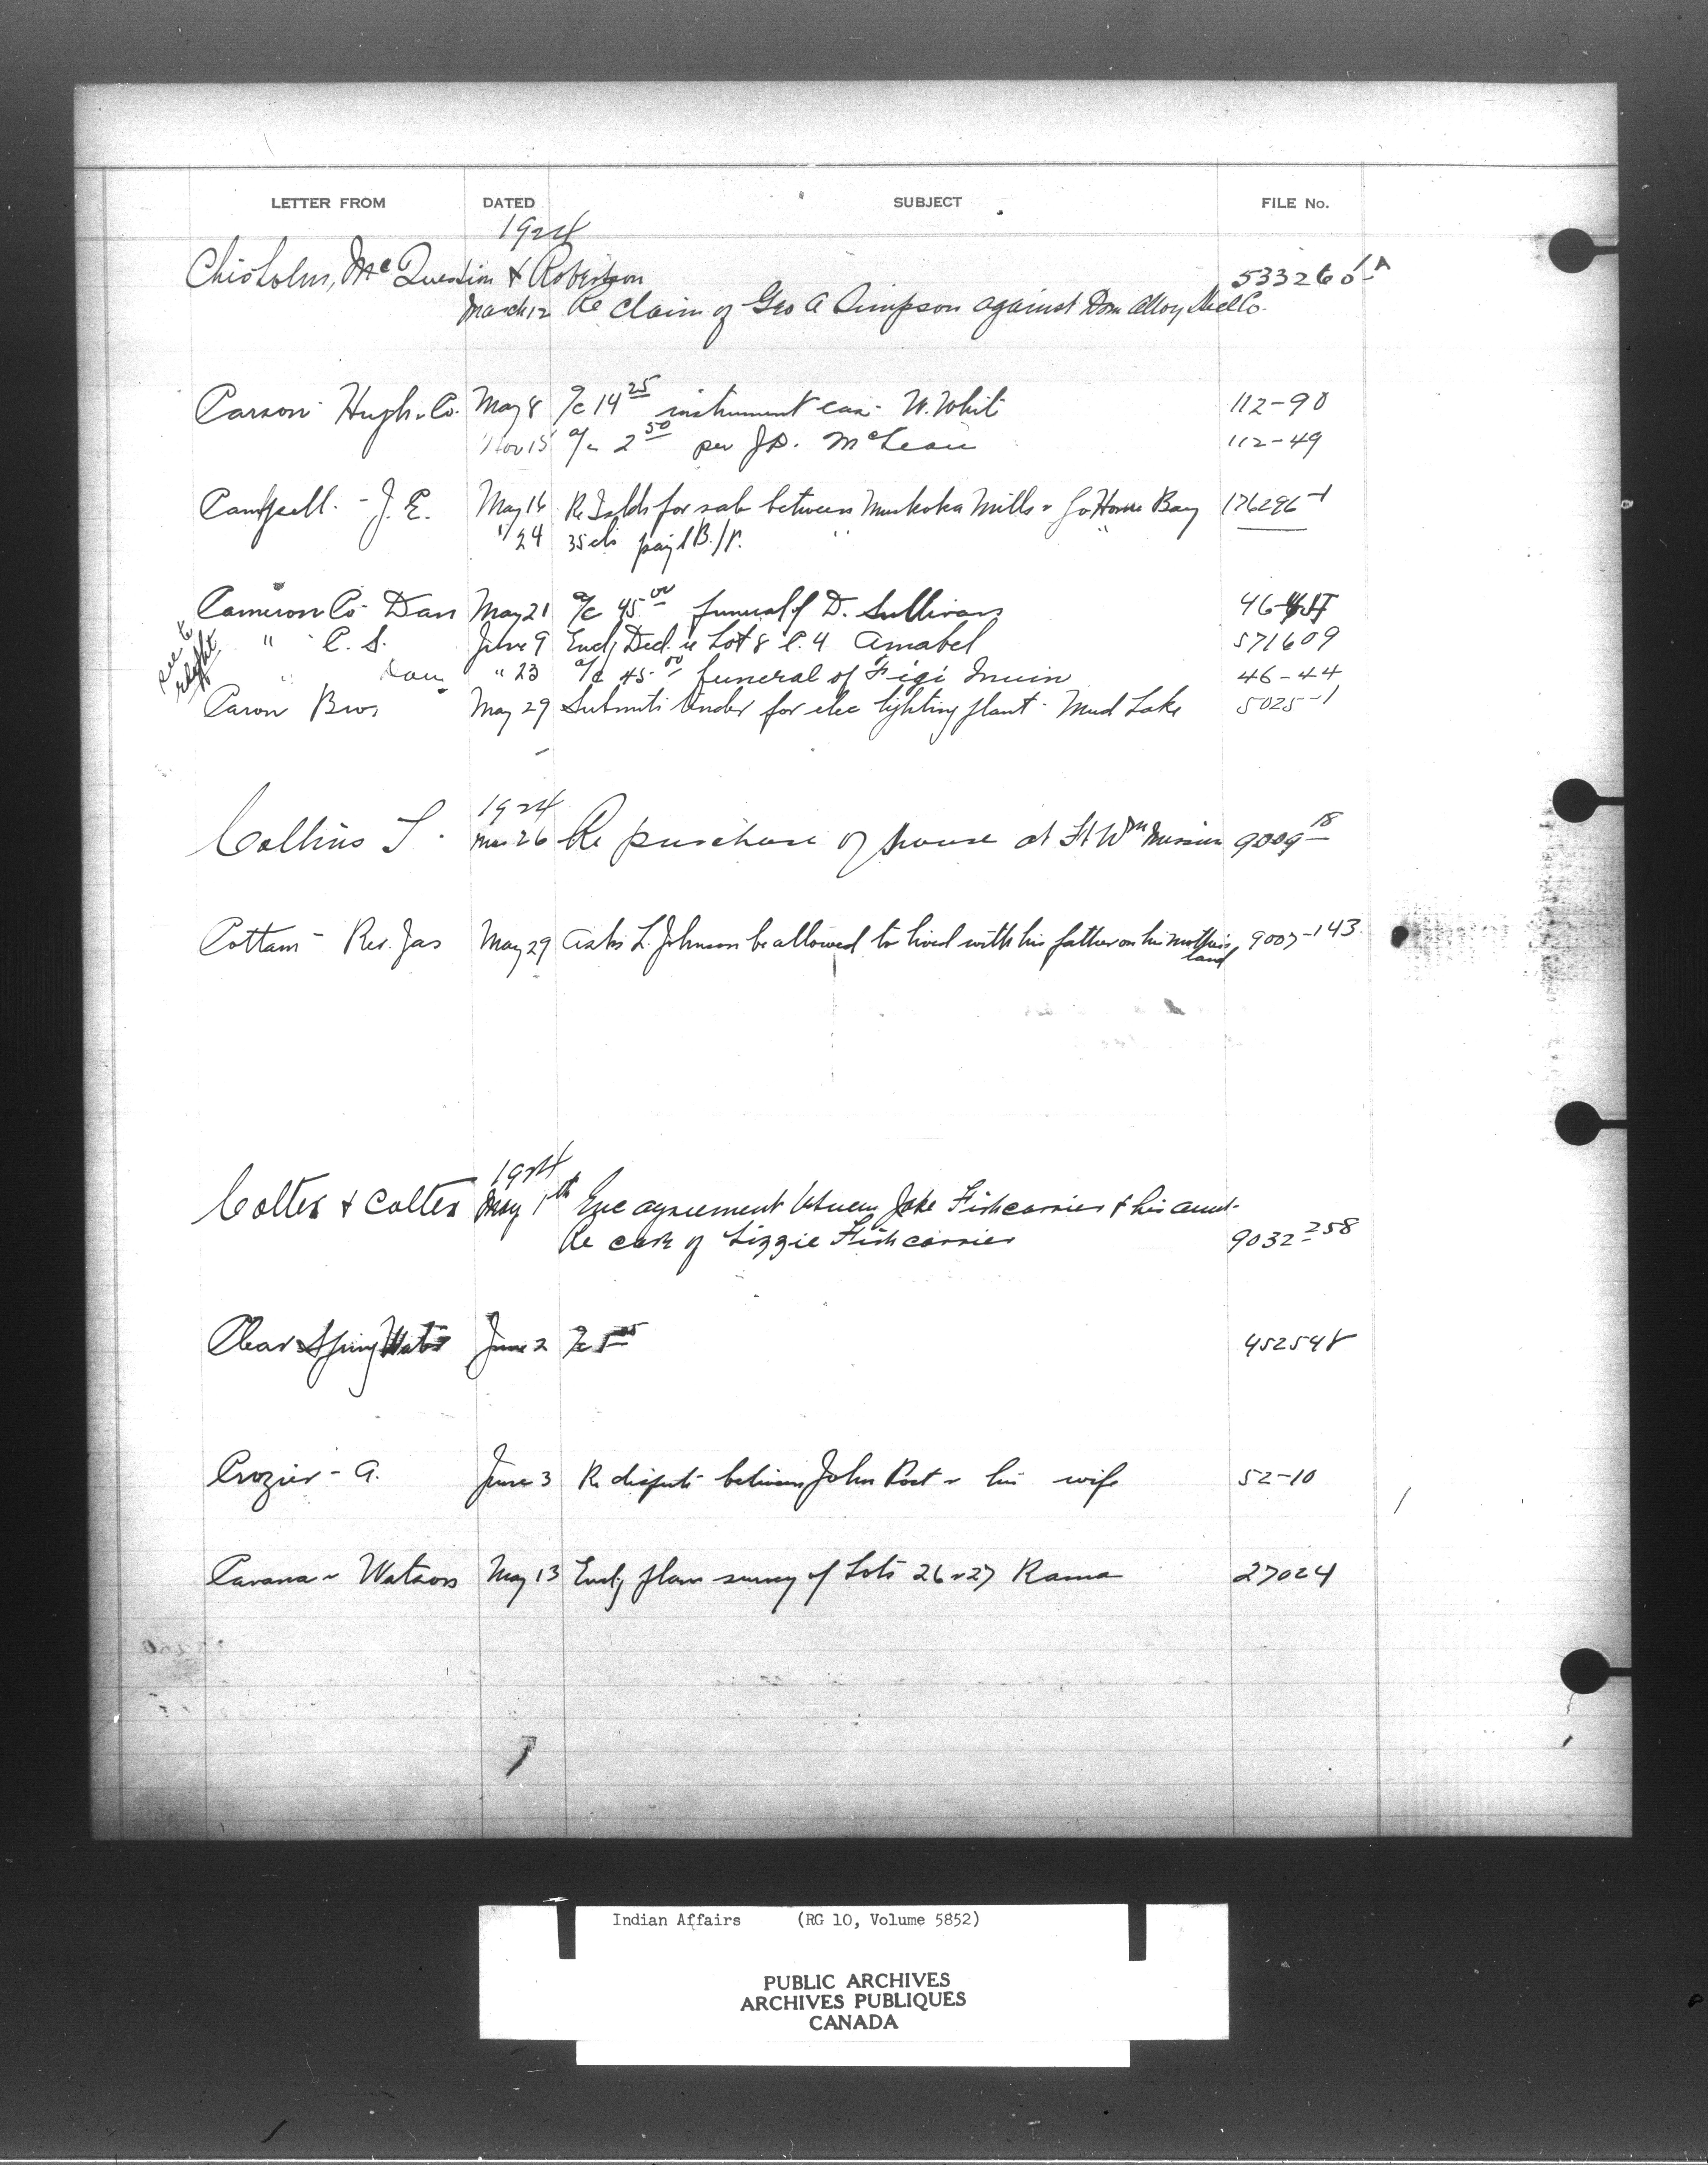 LETTER FROM DATED SUBJECT FILE No.
1924
Chisholm, McQuestion & Robertson 533260
March 12 Re claim of Geo A Simpson against Dom Alloy Steel Co.
Carson Hugh Co. May 8 a/c 14 25 instrument case - W. White 112-90
Nov 15 a/c 2 50 per J.D. McLean 112-49
Campbell - J. E. May 16 Re Islds for sale between Muskoka Mills & Go Home Bay 176296-1
" 24 35 cts payt B/P. " "
Cameron Co Dan May 21 a/c 45 00 funeral of D. Sullivan 46-
" C. S. June 9 Encl Decl. re Lot 8 C. 4 Amabel 571609
" Dan " 23 a/c 45 00 funeral of Figi 46-44
see to right
Caron Bros May 29 Submits tender for elec lighting plant - Mud Lake 5025-1
1924
Collins T. Mar 26 Re purchase of house at Ft Wm Mission 9009-18
Cottam - Rev. Jas May 29 Asks L. Johnson be allowed to lived with his father on his mothers land 9007-143
1924
Colter & Colter May 1th Enc agreement between Jake Fishcarrier & his aunt
Re care of Lizzie Fishcarrier 9032-258
Clear Spring Water June 2 a/c 452548
Crozier - A. June 3 Re dispute between John Root & his wife 52-10
Cavana & Watson May 13 Encl plan survey of Lots 26 & 27 Rama 27024
Indian Affairs (RG 10, Volume 5852)
PUBLIC ARCHIVES
ARCHIVES PUBLIQUES
CANADA